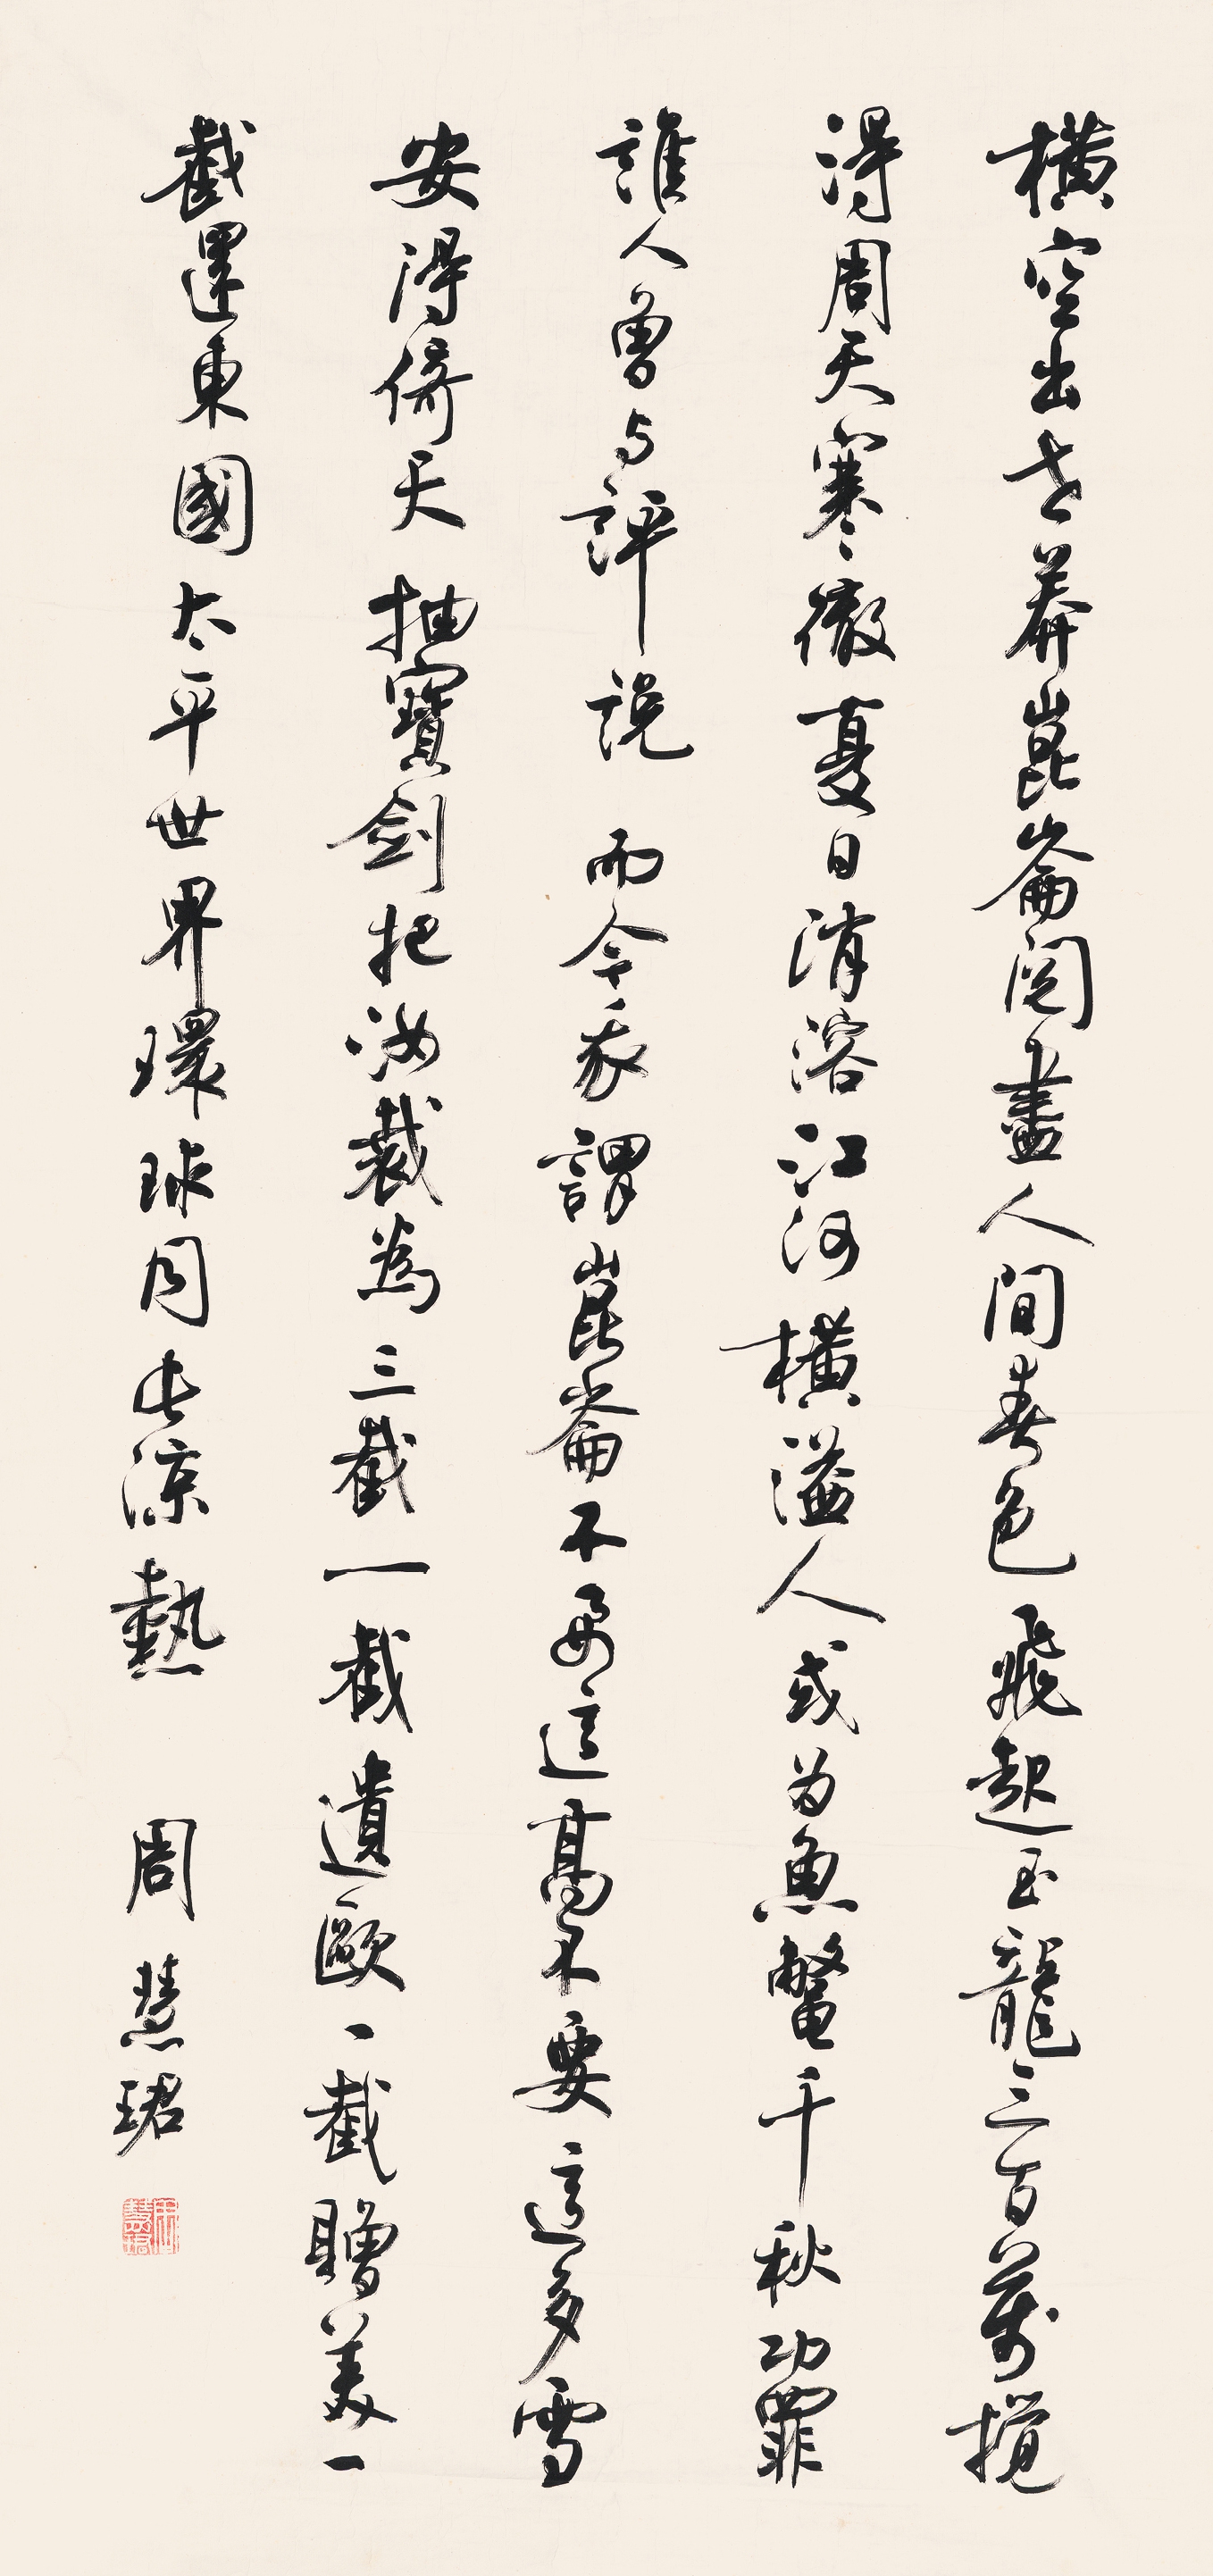 橫空出世莽崑崙閱盡人間春色飛起玉龍三百萬攪
得周天寒徹夏日消溶江河橫溢人或为魚鱉千秋功罪
誰人曾与評說而今我謂崑崙不要這高不要這多雪
安得倚天抽寶劍把汝裁為三截一截遺歐一截贈美一
截還東國太平世界環球同此涼熱周慧珺
周慧珺